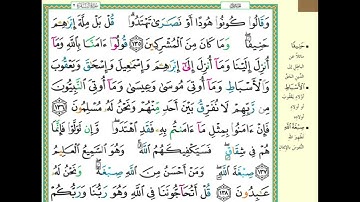 وَقَالُوا۟ كُونُوا۟ هُودًا أَوْ نَصَـٰرَىٰ تَهْتَدُوا۟ ۗ قُلْ بَلْ مِلَّةَ إِبْرَٰهِـۧمَ
حَنِيفًا ۖ وَمَا كَانَ مِنَ ٱلْمُشْرِكِينَ ١٣٥ قُولُوٓا۟ ءَامَنَّا بِٱللَّهِ وَمَآ
أُنزِلَ إِلَيْنَا وَمَآ أُنزِلَ إِلَىٰٓ إِبْرَٰهِـۧمَ وَإِسْمَـٰعِيلَ وَإِسْحَـٰقَ وَيَعْقُوبَ
وَٱلْأَسْبَاطِ وَمَآ أُوتِىَ مُوسَىٰ وَعِيسَىٰ وَمَآ أُوتِىَ ٱلنَّبِيُّونَ
مِن رَّبِّهِمْ لَا نُفَرِّقُ بَيْنَ أَحَدٍ مِّنْهُمْ وَنَحْنُ لَهُۥ مُسْلِمُونَ ١٣٦
فَإِنْ ءَامَنُوا۟ بِمِثْلِ مَآ ءَامَنتُم بِهِۦ فَقَدِ ٱهْتَدَوا۟ ۖ وَّإِن تَوَلَّوْا۟ فَإِنَّمَا
هُمْ فِى شِقَاقٍ ۖ فَسَيَكْفِيكَهُمُ ٱللَّهُ ۚ وَهُوَ ٱلسَّمِيعُ ٱلْعَلِيمُ
١٣٧ صِبْغَةَ ٱللَّهِ ۖ وَمَنْ أَحْسَنُ مِنَ ٱللَّهِ صِبْغَةً ۖ وَنَحْنُ لَهُۥ
عَـٰبِدُونَ ١٣٨ قُلْ أَتُحَآجُّونَنَا فِى ٱللَّهِ وَهُوَ رَبُّنَا وَرَبُّكُمْ
حَنِيفًا
ٱلْأَسْبَاطِ
صِبْغَةَ ٱللَّهِ